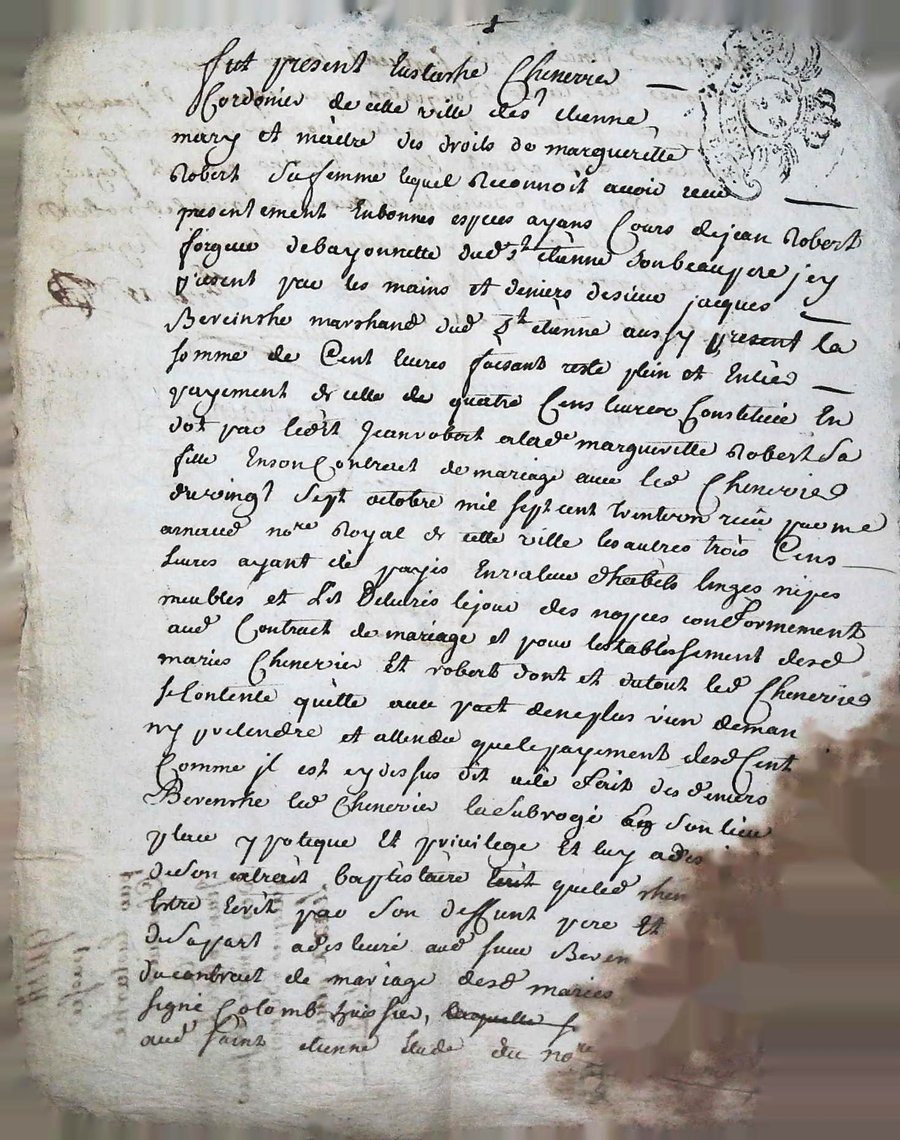 fut present Eustashe Chenevier
Cordonier de cette ville de St etienne
mary et maitre des droits de margueritte
Robert sa femme lequel Reconnoit avoir receu
presentement En bonnes especes ayans Cours de jean Robert
forgeur de bayonnette dud St etienne son beau pere jcy
present par les mains et deniers de sieur jacques
Berenshe marchand dud St etienne aussy present la
somme de Cent livres faisant reste plein et Entier
payement de celle de quatre Cens livres Constituée En
dot par ledit Jean robert a lade margueritte Robert Sa
fille En son Contract de mariage avec led Chenevier
du vingt sept octobre mil sept cent trente un receu par me
arnaud nore Royal de cette ville les autres trois Cens
Livres ayant été payés En valeur d'habits linges nipes
meubles et Lit Delivrés le jour des nopces conformement
aud Contract de mariage et pour l'establissement desd
mariés Chenevier Et robert dont et du tout led Chenevier
se Contente quitte avec pact de ne plus rien deman
ny pretendre et attendu que le payement desd Cent
Comme jl est cy dessus dit a été fait des deniers
Berenshe led Chenevier la Subrogé en son lieu
place ypoteque Et privilege Et luy a des
de son extrait baptistaire Ecrit que led chen
Estre Ecrit par son deffunt pere Et
de sa part a des livré aud sieur Beren
du contract de mariage desd mariés
signé Colomb huissier, laquelle
aud saint etienne Etude du nore